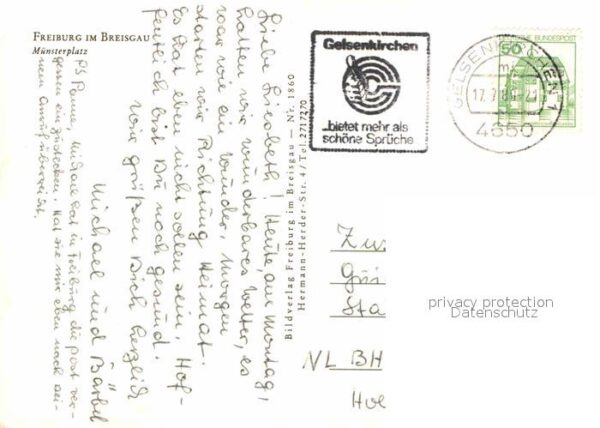 FREIBURG IM BREISGAU
Münsterplatz
Liebe Liesbeth! Heute, am Montag,
hatten wir wunderbares Wetter, es
war wie ein Wunder, morgen
starten wir Richtung Heimat.
Es hat eben nicht sollen sein, Hof-
fentlich bist Du noch gesund.
Wir grüßen Dich herzlich
Michael und Bärbel
PS Panne Michael hat in Freiburg die Post ver-
gessen einzustecken. Hat sie mir eben nach sei-
nem überreicht.
Bildverlag Freiburg im Breisgau — Nr. 1860
Hermann-Herder-Str. 4 / Tel. 2717270
Gelsenkirchen
...bietet mehr als
schöne Sprüche
DEUTSCHE BUNDESPOST
50
GELSENKIRCHEN 1
4650
Zw
Gri
Sta
NL BH
Hoe
privacy protection
Datenschutz